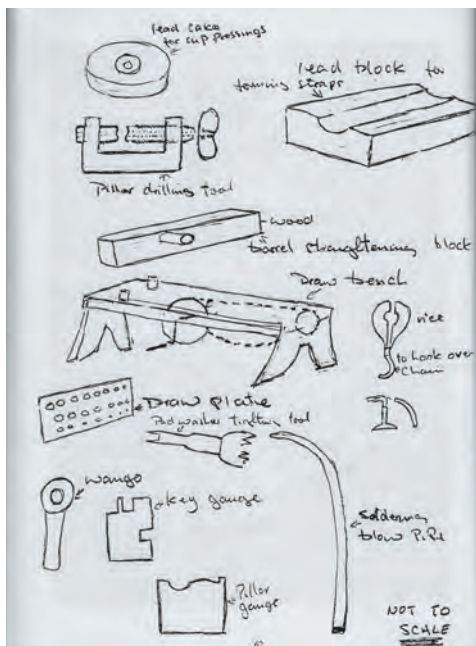 lead cake
for cup pressings
lead block for
forming straps
Pillar drilling tool
wood
barrel straightening block
Draw bench
vice
to hook over
chain
Draw plate
Pad washer tighting tool
wango
key gauge
Soldering
blow PiPe
Pillar
gauge
NOT TO
SCALE